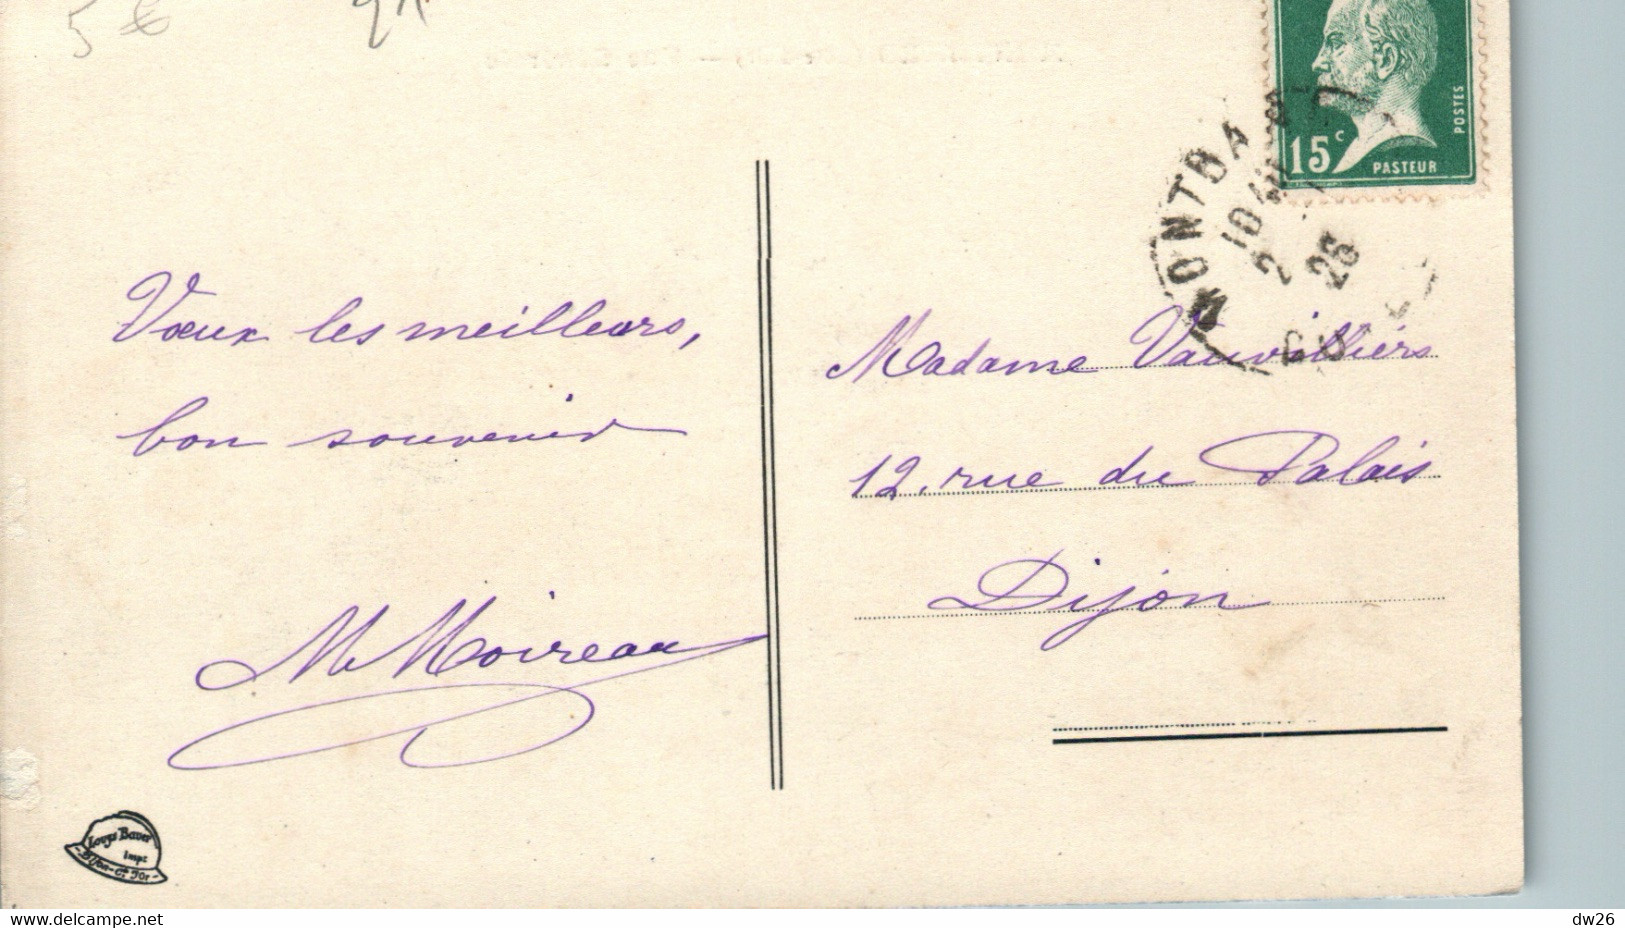 5 €
15 c
PASTEUR
POSTES
MONTBA
10
2 25
Vœux les meilleurs,
bon souvenir
M Moireau
Madame Vauvilliers
12. rue du Palais
Dijon
Louys Bauer
Impr
Dijon-Ct d'Or
delcampe.net
dw26